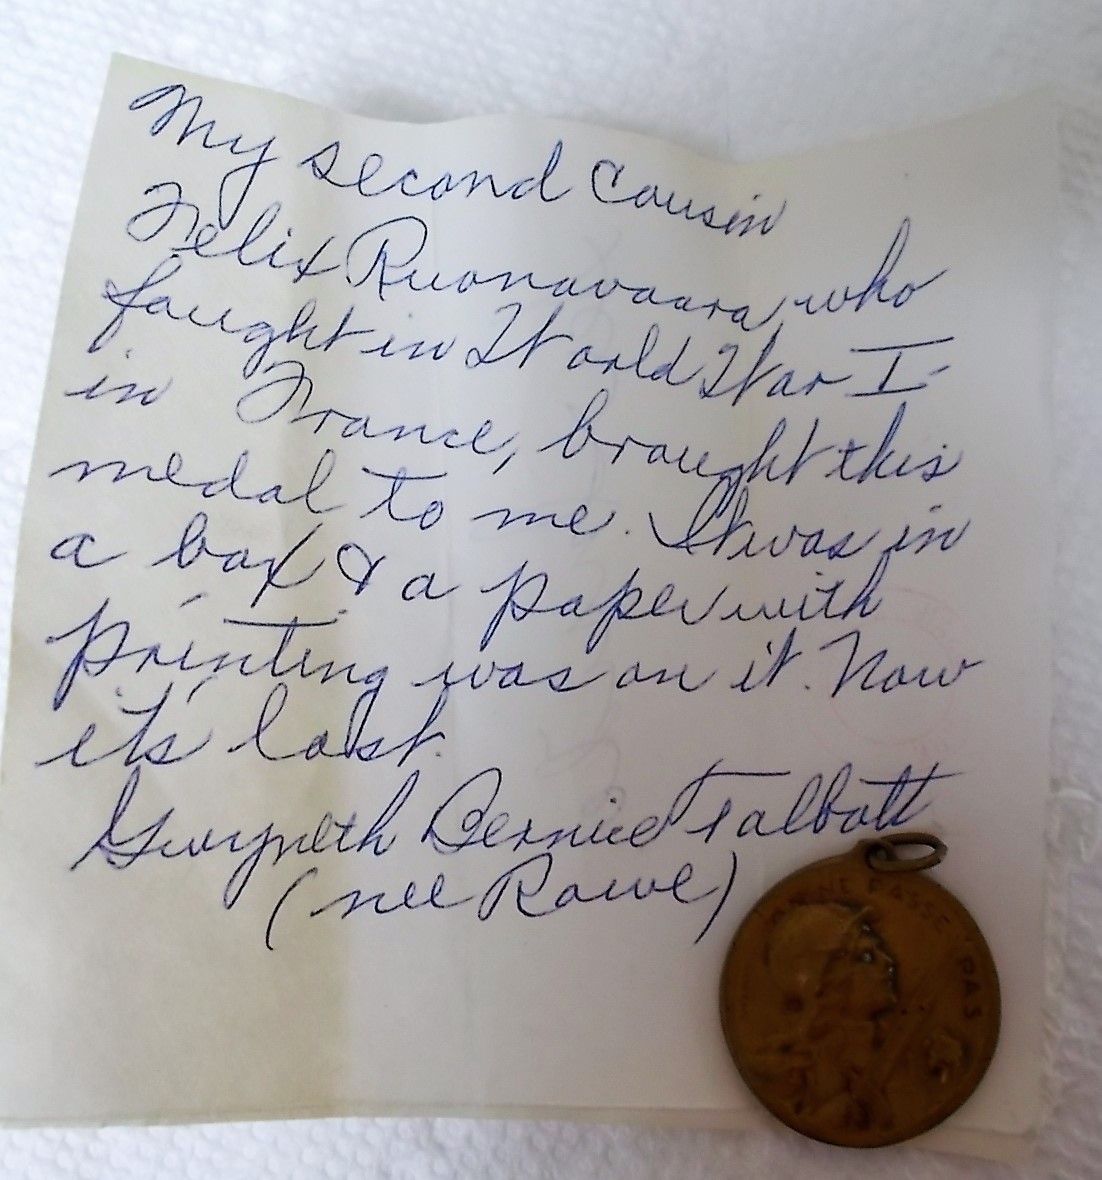 My second Cousin
Felix Ruonavaara, who
fought in World War I
in France, brought this
medal to me. It was in
a box & a paper with
printing was on it. Now
it's lost.
Gwyneth Bernice Talbott
(nee Rowe)
ON NE PASSE PAS